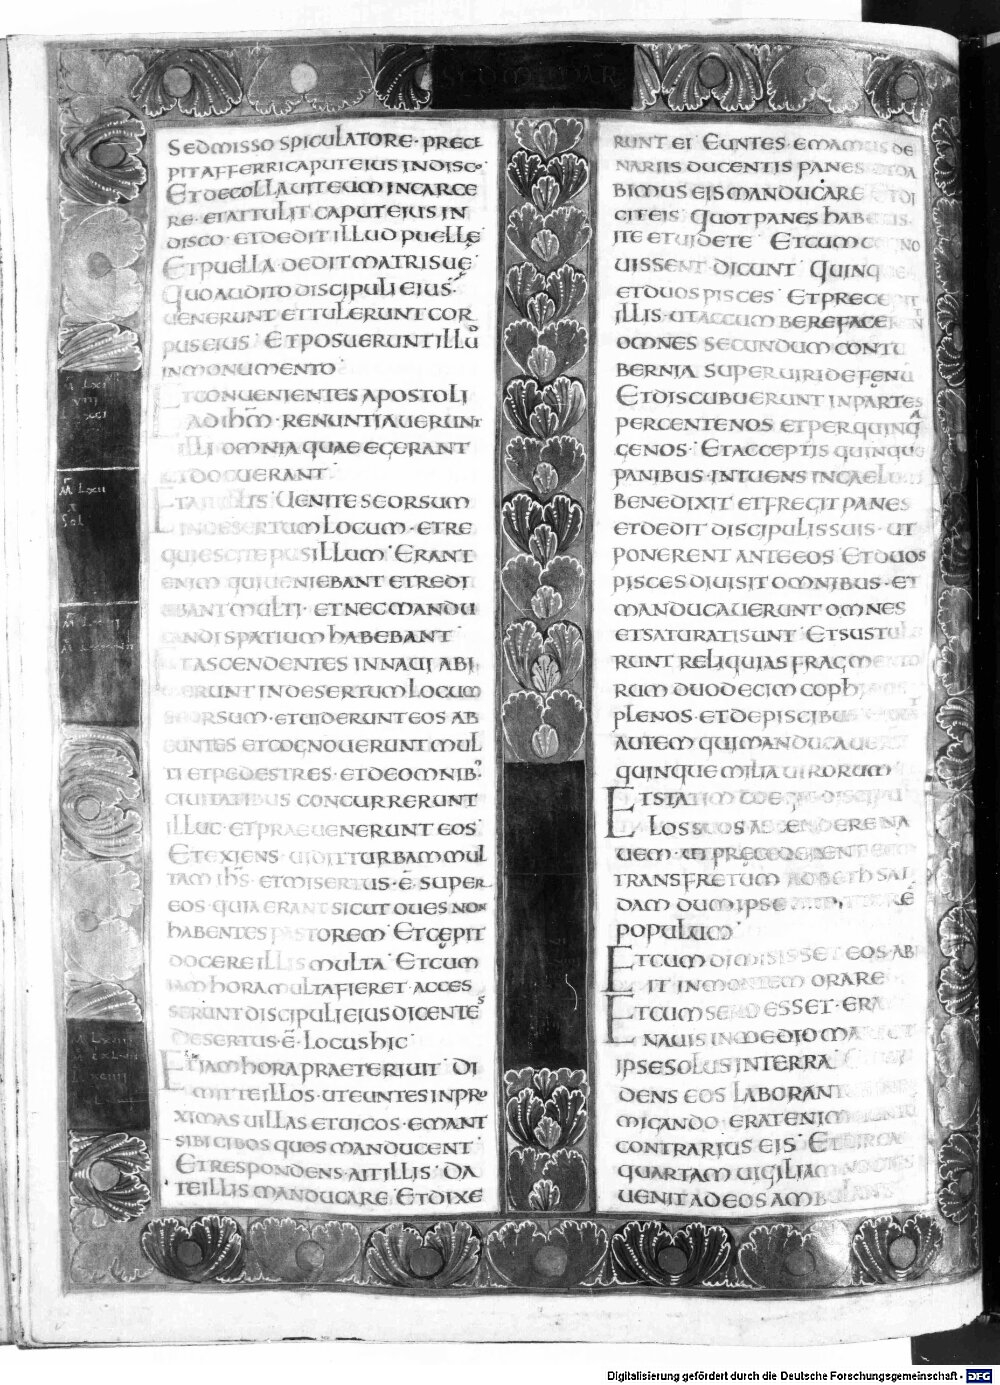 SED MISSO SPICULATORE · PRECI
PIT AFFERRI CAPUT EIUS IN DISCO·
ET DECOLLAUIT EUM IN CARCE
RE · ET ATTULIT CAPUT EIUS IN
DISCO · ET DEDIT ILLUD PUELLE
ET PUELLA DEDIT MATRI SUE
QUO AUDITO DISCIPULI EIUS·
UENERUNT ET TULERUNT COR
PUS EIUS · ET POSUERUNT ILLU
IN MONUMENTO
ET CONUENIENTES APOSTOLI
AD IHM · RENUNTIAUERUNT
ILLI OMNIA QUAE EGERANT
ET DOCUERANT
ET AIT ILLIS UENITE SEORSUM
IN DESERTUM LOCUM · ET RE
QUIESCITE PUSILLUM · ERANT
ENIM QUI UENIEBANT ET REDI
EBANT MULTI · ET NEC MANDU
CANDI SPATIUM HABEBANT
ET ASCENDENTES IN NAUI ABI
ERUNT IN DESERTUM LOCUM
SEORSUM · ET UIDERUNT EOS AB
EUNTES ET COGNOUERUNT MUL
TI ET PEDESTRES · ET DE OMNIB·
CIUITATIBUS CONCURRERUNT
ILLUC · ET PRAEUENERUNT EOS
ET EXIENS · UIDIT TURBAM MUL
TAM IHS · ET MISERTUS · Ē SUPER
EOS · QUIA ERANT SICUT OUES NON
HABENTES PASTOREM · ET CEPIT
DOCERE ILLIS MULTA · ET CUM
IAM HORA MULTA FIERET · ACCES
SERUNT DISCIPULI EIUS DICENTES
DESERTUS · Ē · LOCUS HIC
ET IAM HORA PRAETERIUIT DI
MITTE ILLOS · UT EUNTES IN PRO
XIMAS UILLAS ET UICOS · EMANT
SIBI CIBOS QUOS MANDUCENT
ET RESPONDENS · AIT ILLIS · DA
TE ILLIS MANDUCARE · ET DIXE
RUNT EI EUNTES · EMAMUS DE
NARIIS DUCENTIS PANES ET DA
BIMUS EIS MANDUCARE ET DI
CIT EIS QUOT PANES HABETIS
ITE ET UIDETE · ET CUM COGNO
UISSENT · DICUNT QUINQUE
ET DUOS PISCES · ET PRECEPIT
ILLIS · UT ACCUMBERE FACERENT
OMNES SECUNDUM CONTU
BERNIA SUPER UIRIDE FENU
ET DISCUBUERUNT IN PARTES
PER CENTENOS ET PER QUINQUA
GENOS · ET ACCEPTIS QUINQUE
PANIBUS · INTUENS IN CAELUM
BENEDIXIT ET FREGIT PANES
ET DEDIT DISCIPULIS SUIS · UT
PONERENT ANTE EOS ET DUOS
PISCES DIUISIT OMNIBUS · ET
MANDUCAUERUNT OMNES
ET SATURATI SUNT · ET SUSTULE
RUNT RELIQUIAS FRAGMENTO
RUM DUODECIM COPHINOS
PLENOS · ET DE PISCIBUS
AUTEM QUI MANDUCAUERUNT
QUINQUE MILIA UIRORUM
ET STATIM COEGIT · DISCIPU
LOS SUOS ASCENDERE NA
UEM · UT PRECEDERENT EUM
TRANS FRETUM AD BETHSAI
DAM DUM IPSE
POPULUM
ET CUM DIMISISSET EOS · ABI
IT IN MONTEM ORARE
ET CUM SERO ESSET · ERAT
NAUIS IN MEDIO MARI ET
IPSE SOLUS IN TERRA
DENS EOS LABORANTES
MIGANDO · ERAT ENIM UENTUS
CONTRARIUS EIS · ET CIRCA
QUARTAM UIGILIAM NOCTIS
UENIT AD EOS AMBULANS
Digitalisierung gefördert durch die Deutsche Forschungsgemeinschaft - DFG